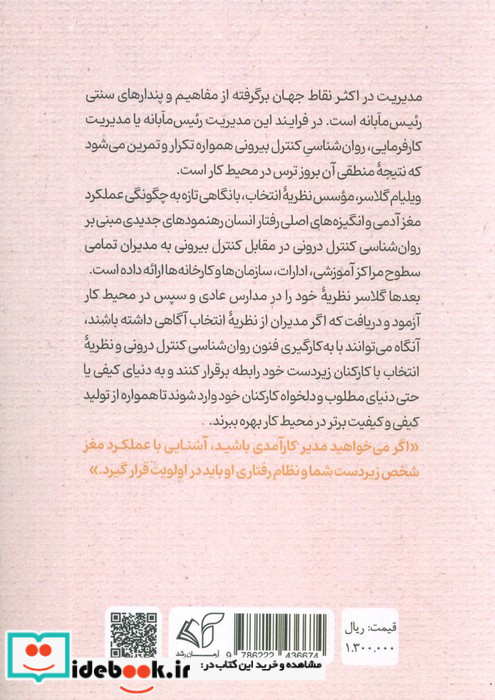 مدیریت در اکثر نقاط جهان برگرفته از مفاهیم و پندارهای سنتی
رئیس‌مآبانه است. در فرایند این مدیریت رئیس‌مآبانه یا مدیریت
کارفرمایی، روان‌شناسیِ کنترل بیرونی همواره تکرار و تمرین می‌شود
که نتیجهٔ منطقی آن بروز ترس در محیط کار است.
ویلیام گلاسر، مؤسس نظریهٔ انتخاب، با نگاهی تازه به چگونگی عملکرد
مغز آدمی و انگیزه‌های اصلی رفتار انسان رهنمودهای جدیدی مبنی بر
روان‌شناسی کنترل درونی در مقابل کنترل بیرونی به مدیران تمامی
سطوح مراکز آموزشی، ادارات، سازمان‌ها و کارخانه‌ها ارائه داده است.
بعدها گلاسر نظریهٔ خود را در مدارس عادی و سپس در محیط کار
آزمود و دریافت که اگر مدیران از نظریهٔ انتخاب آگاهی داشته باشند،
آنگاه می‌توانند با به‌کارگیری فنون روان‌شناسی کنترل درونی و نظریهٔ
انتخاب با کارکنان زیردست خود رابطه برقرار کنند و به دنیای کیفی یا
حتی دنیای مطلوب و دلخواه کارکنان خود وارد شوند تا همواره از تولید
کیفی و کیفیت برتر در محیط کار بهره ببرند.
«اگر می‌خواهید مدیر کارآمدی باشید، آشنایی با عملکرد مغز
شخص زیردست شما و نظام رفتاری او باید در اولویت قرار گیرد.»
قیمت: ریال
۱.۳۰۰.۰۰۰
آرمان رشد
9 786222 436674
مشاهده و خرید این کتاب در:
idebook.ir